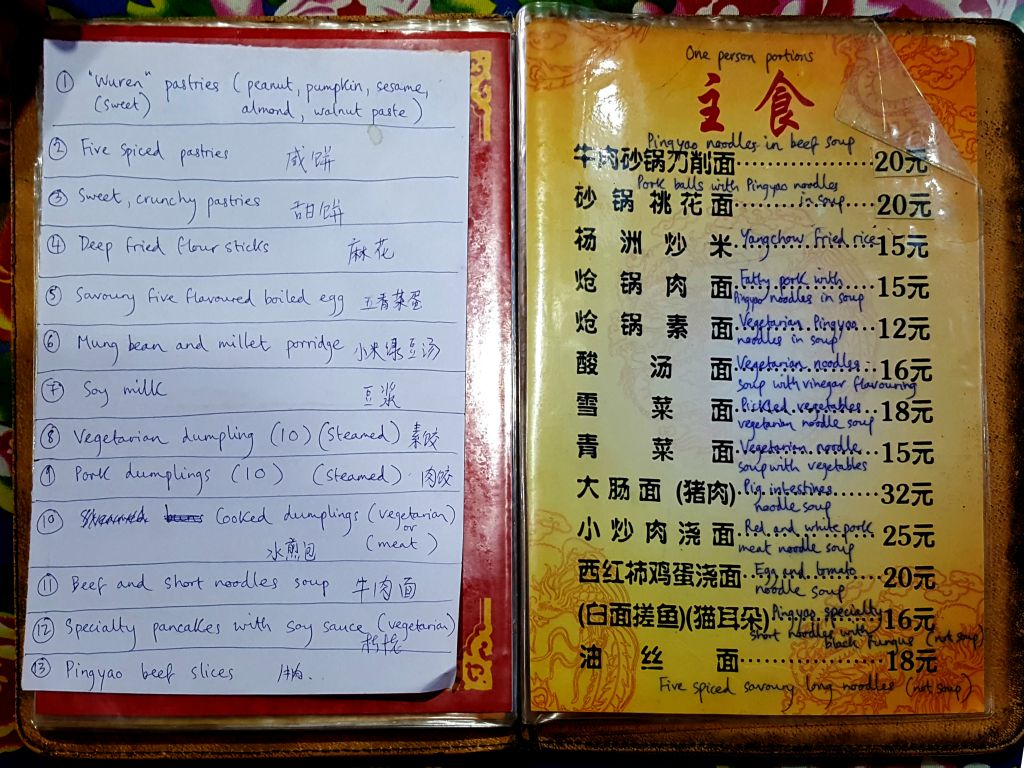 ① "Wuren" pastries (peanut, pumpkin, sesame,
(sweet) almond, walnut paste)
② Five spiced pastries 咸饼
③ Sweet, crunchy pastries 甜饼
④ Deep fried flour sticks 麻花
⑤ Savoury five flavoured boiled egg 五香菜蛋
⑥ Mung bean and millet porridge 小米绿豆汤
⑦ Soy milk 豆浆
⑧ Vegetarian dumpling (10) (steamed) 素饺
⑨ Pork dumplings (10) (steamed) 肉饺
⑩ Cooked dumplings (vegetarian)
or
水煎包 (meat)
⑪ Beef and short noodles soup 牛肉面
⑫ Specialty pancakes with soy sauce (vegetarian)
⑬ Pingyao beef slices
One person portions
主食
Pingyao noodles in beef soup
牛肉砂锅刀削面 20元
Pork balls with Pingyao noodles
in soup
砂锅桃花面 20元
扬洲炒米 Yangchow fried rice 15元
炝锅肉面 Fatty pork with 15元
Pingyao noodles in soup
炝锅素面 Vegetarian Pingyao 12元
noodles in soup
酸汤面 Vegetarian noodles 16元
soup with vinegar flavouring
雪菜面 Pickled vegetables 18元
vegetarian noodle soup
青菜面 Vegetarian noodle 15元
soup with vegetables
大肠面(猪肉) Pig intestines 32元
noodle soup
小炒肉浇面 Red and white pork 25元
meat noodle soup
西红柿鸡蛋浇面 Egg and tomato 20元
noodle soup
(白面搓鱼)(猫耳朵) Pingyao specialty 16元
short noodles with
black fungus (not soup)
油丝面 18元
Five spiced savoury long noodles (not soup)